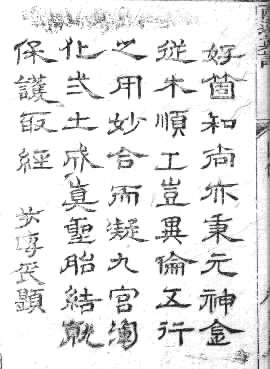 好箇和尚亦秉元神金
從木順工豈異倫五行
之用妙合而凝九宮淘
化弍土成真聖胎結就
保護取經 題